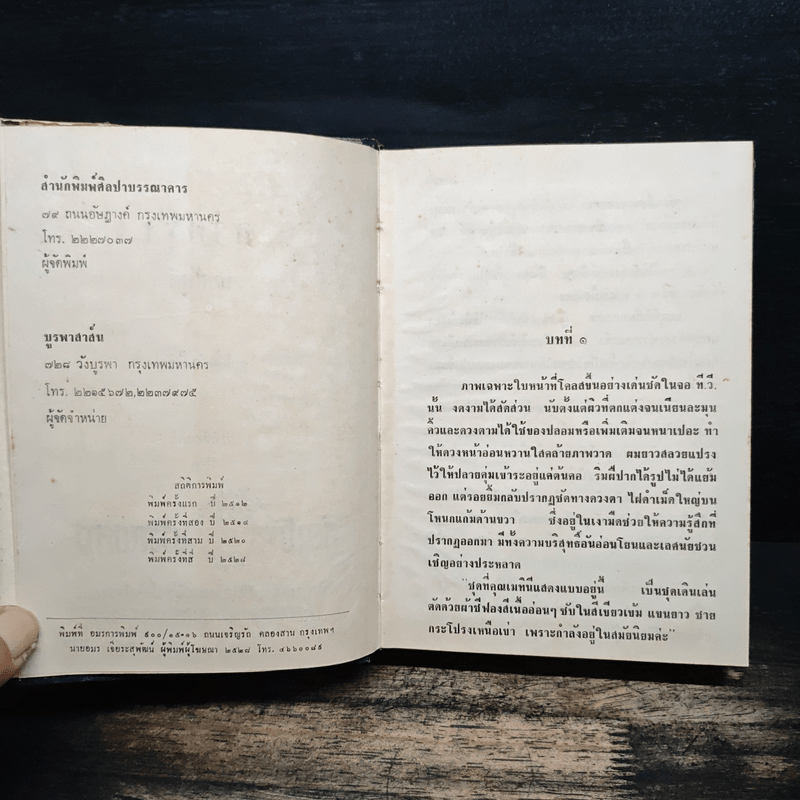 สำนักพิมพ์ศิลปาบรรณาคาร
๗๙ ถนนอัษฎางค์ กรุงเทพมหานคร
โทร. ๒๒๒๗๐๓๗
ผู้จัดพิมพ์
บูรพาสาส์น
๗๒๘ วังบูรพา กรุงเทพมหานคร
โทร. ๒๒๑๕๖๗๒,๒๒๓๗๙๗๕
ผู้จัดจำหน่าย
สถิติการพิมพ์
พิมพ์ครั้งแรก ปี ๒๕๑๒
พิมพ์ครั้งที่สอง ปี ๒๕๑๔
พิมพ์ครั้งที่สาม ปี ๒๕๒๐
พิมพ์ครั้งที่สี่ ปี ๒๕๒๘
พิมพ์ที่ อมรการพิมพ์ ๕๐๐/๑๕-๑๖ ถนนเจริญรัถ คลองสาน กรุงเทพฯ
นายอมร เจียระสุพัฒน์ ผู้พิมพ์ผู้โฆษณา ๒๕๒๘ โทร. ๔๖๖๐๐๘๕
บทที่ ๑
ภาพเฉพาะใบหน้าที่โคลสขึ้นอย่างเด่นชัดในจอ ที.วี.
นั้น งดงามได้สัดส่วน นับตั้งแต่ผิวที่ตกแต่งจนเนียนละมุน
คิ้วและดวงตามได้ใช้ของปลอมหรือเพิ่มเติมจนหนาเปอะ ทำ
ให้ดวงหน้าอ่อนหวานใสคล้ายภาพวาด ผมยาวสลวยแปรง
ไว้ให้ปลายคุ่มเข้าระอยู่แค่ต้นคอ ริมฝีปากได้รูปไม่ได้แย้ม
ออก แต่รอยยิ้มกลับปรากฏชัดทางดวงตา ไฝดำเม็ดใหญ่บน
โหนกแก้มด้านขวา ซึ่งอยู่ในเงามืดช่วยให้ความรู้สึกที่
ปรากฏออกมา มีทั้งความบริสุทธิ์อันอ่อนโยนและเลศนัยชวน
เชิญอย่างประหลาด
"ชุดที่คุณเมทินีแสดงแบบอยู่นี้ เป็นชุดเดินเล่น
ตัดด้วยผ้าชีฟองสีเนื้ออ่อนๆ ซับในสีเขียวเข้ม แขนยาว ชาย
กระโปรงเหนือเข่า เพราะกำลังอยู่ในสมัยนิยมค่ะ"